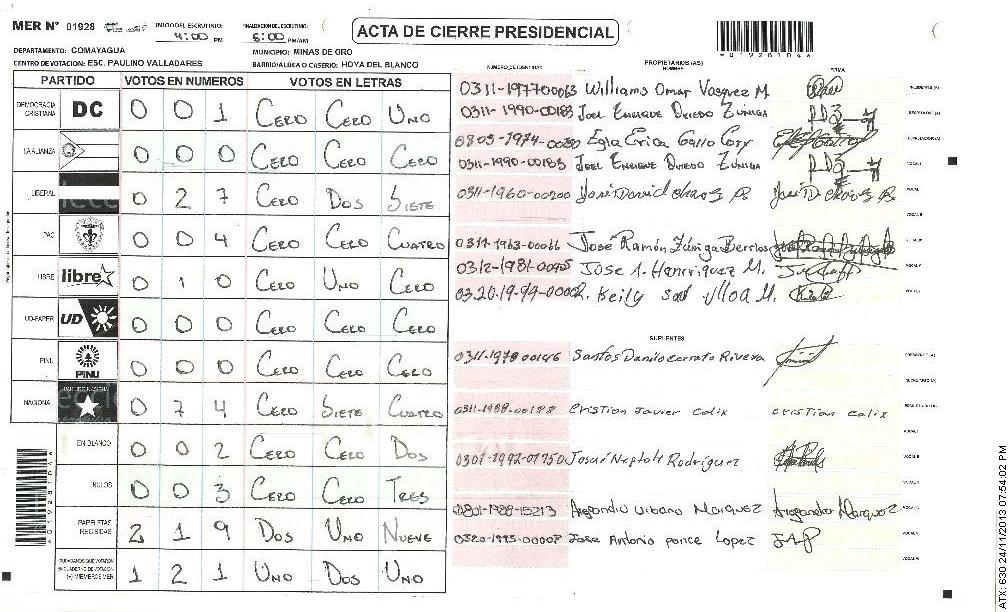 MER N° 01928 INICIO DEL ESCRUTINIO: 4:00 PM FINALIZACION DEL ESCRUTINIO: 5:00 PM/AM
ACTA DE CIERRE PRESIDENCIAL
DEPARTAMENTO: COMAYAGUA MUNICIPIO: MINAS DE ORO
CENTRO DE VOTACION: ESC. PAULINO VALLADARES BARRIO/ALDEA O CASERIO: HOYA DEL BLANCO
PARTIDO VOTOS EN NUMEROS VOTOS EN LETRAS
DEMOCRACIA CRISTIANA DC 0 0 1 CERO CERO UNO
LA ALIANZA 0 0 0 CERO CERO CERO
LIBERAL 0 2 7 CERO DOS SIETE
PAC 0 0 4 CERO CERO CUATRO
LIBRE libre 0 1 0 CERO UNO CERO
UD-FAPER UD 0 0 0 CERO CERO CERO
PINU PINU 0 0 0 CERO CERO CERO
NACIONAL 0 7 4 CERO SIETE CUATRO
EN BLANCO 0 0 2 CERO CERO DOS
NULOS 0 0 3 CERO CERO TRES
PAPELETAS RECIBIDAS 2 1 9 DOS UNO NUEVE
CIUDADANOS QUE VOTARON EN CUADERNO DE VOTACION (+) MIEMBROS MER 1 2 1 UNO DOS UNO
NUMERO DE IDENTIDAD PROPIETARIOS (AS) NOMBRE FIRMA
0311-197700063 Williams Omar Vasquez M. PRESIDENTE (A)
0311-1990-00183 JOEL ENRIQUE OVIEDO ZUNIGA SECRETARIO (A)
0803-1974-00280 Egla Erica Gallo Cory ESCRUTADOR (A)
0311-1990-00183 JOEL ENRIQUE OVIEDO ZUNIGA VOCAL I
0311-1960-00200 José David Chavez B
0311-1963-00066 José Ramón Zúniga Berrios
0312-1981-00405 JOSE A. Hanrriquez M.
03.20.19-94-00002 Keily sad Ulloa M.
SUPLENTES
0311-1978 00146 Santos Danilo corrato Rivera PRESIDENTE (A)
SECRETARIO (A)
0311-1988-00188 Cristian Javier Calix cristian calix
0301-1992-01750 Josué Neptaly Rodríguez
0801-1988-15213 Alegandro Urbano Marquez Alegandro Marquez
0320-1995-00008 Jose Antonio ponce Lopez JAP
*01928104*
ATX: 630 24/11/2013 07:54:02 PM